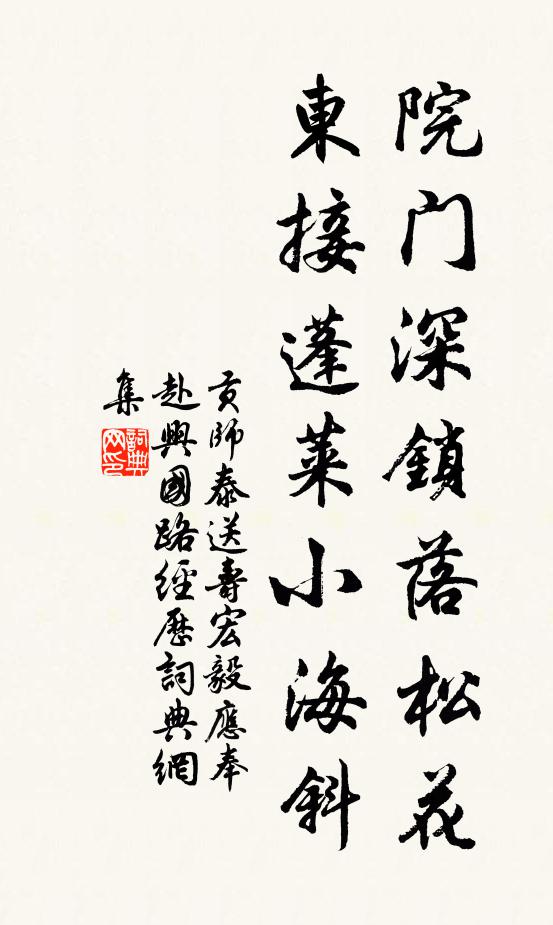 院门深鎖落松花
東接蓬萊小海斜
貢師泰送壽宏毅應奉
赴興國路經歷詞典網
集
詞典
网印